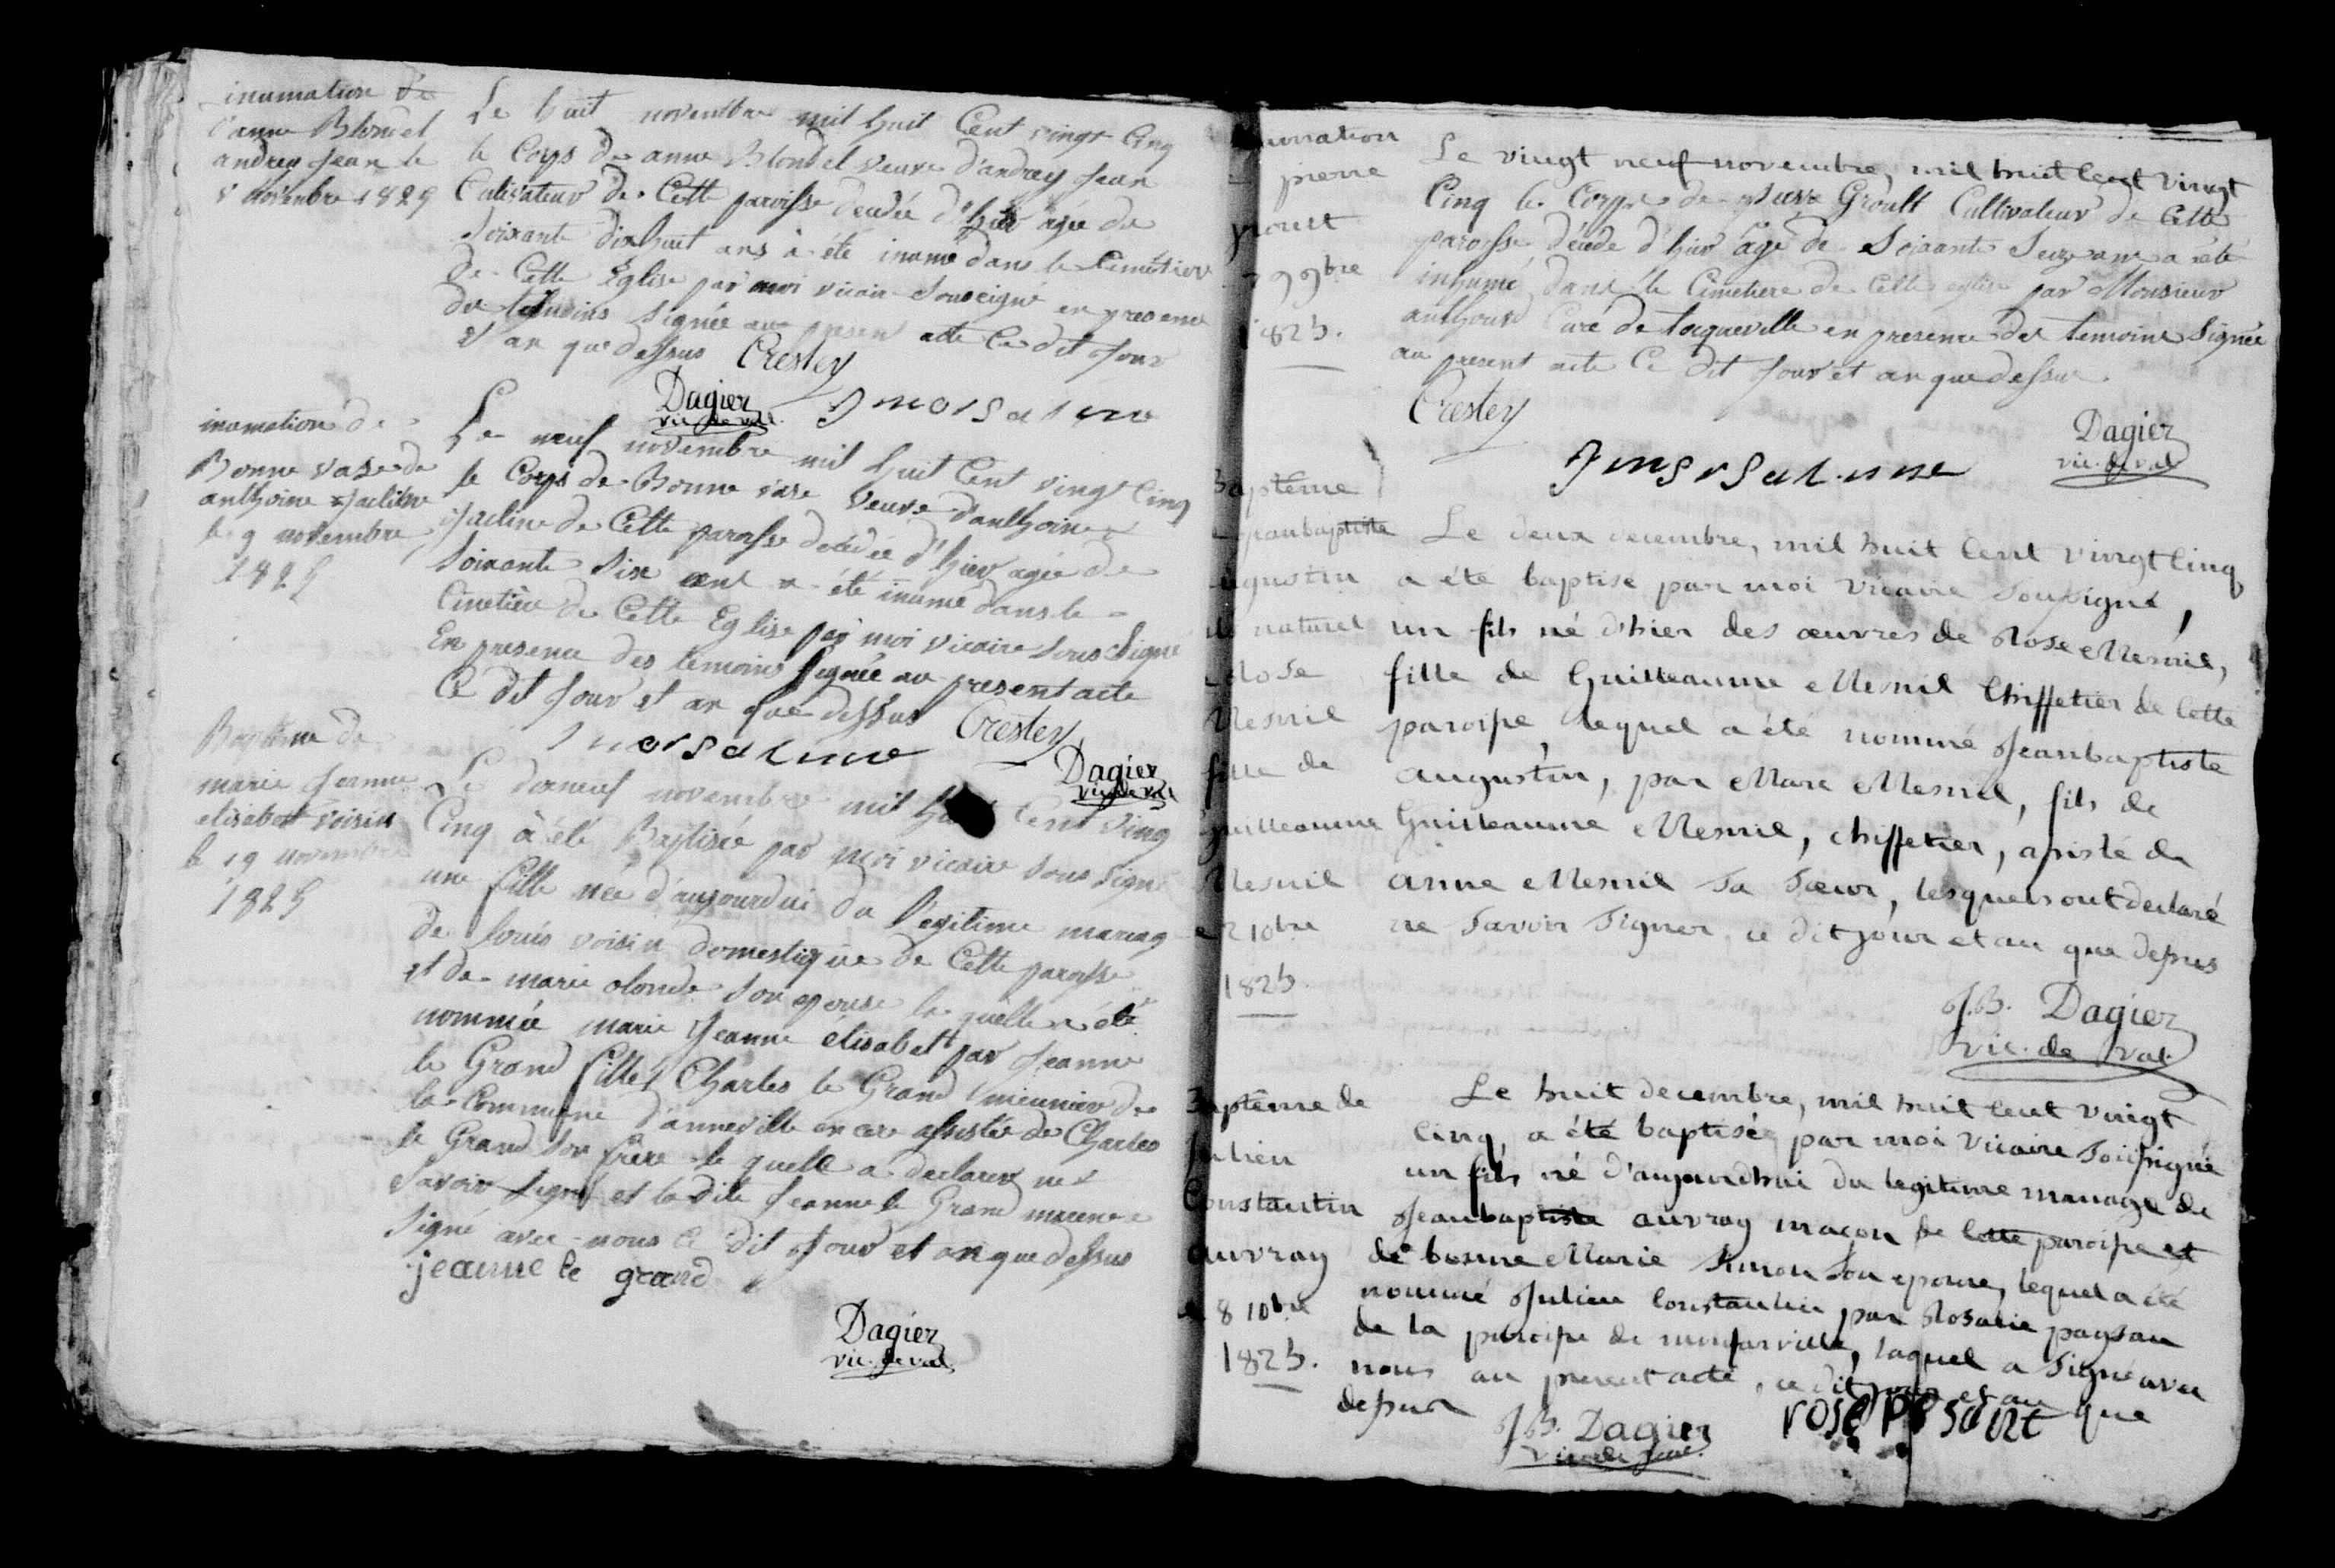 inumation de
l'anne Blondel
andrey Jean le
8 novembre 1825
Le huit novembre mil huit Cent vingt Cinq
le Corps de anne Blondel veuve d'andrey Jean
Cultivateur de Cette paroisse decedée d'hier agée de
Soixante dix huit ans à été inumé dans le Cimétier
De Cette Eglise par moi vicair Sousigné en presence
de temoins Signée au present acte Ce dit Jour
et an que dessus Crestey
Dagier
vic. de val.
inumation de
Bonne vase de
anthoine Jacline
le 9 novembre
1825
Le neuf novembre mil huit Cent vingt Cinq
le Corps de Bonne vase veuve d'anthoine
Jacline de Cette paroisse decedée d'hier agée de
Soixante Six ans a été inumé dans le
Cimetière de Cette Eglise par moi vicaire Sous Signé
En presence des temoins Signée au present acte
Ce dit Jour et an que dessus Crestey
Dagier
vic. de val
Baptême de
marie Jeanne
elisabett voisin
le 19 novembre
1825
Le dixneuf novembre mil Cent ving
Cinq à été Baptisée par moi vicaire Sous Signé
une fille née d'aujourdui du legitime mariag
de louis voisin domestique de Cette paroisse
et de marie olonde son epouse la quelle a été
nommée marie Jeanne élisabett par Jeanne
le Grand fille Charles le Grand meunier de
la Commune d'anneville en cere assistée de Charles
le Grand Son frère le quelle a declarer ne
Savoir Signé et la dite Jeanne le Grand mareine
Signé avec nous Ce dit Jour et an que dessus
jeanne le grand
Dagier
vic. de val.
pierre
1825.
Le vingt neuf novembre, mil huit Cent vingt
Cinq le Corps de pierre Groult Cultivateur de Cette
paroisse décédé d'hier âgé de Soixante Seize ans a été
inhumé dans le Cimetiere de Cette eglise par Monsieur
anthouard Curé de tocqueville en presence des temoins Signée
au present acte Ce dit Jour et an que dessus.
Crestey
Dagier
vic. de val
Baptême
Jeanbaptiste
augustin
naturel
Rose
Mesnil
fille de
Guilleaume
Mesnil
le 2 10bre
1825.
Le deux decembre, mil huit Cent vingt Cinq
a été baptisé par moi vicaire Soussigné,
un fils né d'hier des œuvres de Rose Mesnil,
fille de Guilleaume Mesnil Chiffetier de Cette
paroisse, lequel a été nommé Jeanbaptiste
augustin, par Marc Mesnil, fils de
Guilleaume Mesnil, chiffetier, assisté de
anne Mesnil Sa Sœur, lesquels ont declaré
ne Savoir Signer, ce dit jour et an que dessus
J.B. Dagier
vic. de val.
Baptême de
Julien
Constantin
auvray
le 8 10bre
1825.
Le huit decembre, mil huit Cent vingt
Cinq, a été baptisé par moi vicaire Soussigné
un fils né d'aujourdhui du legitime mariage de
Jeanbaptiste auvray maçon de Cette paroisse et
de bonne Marie Simon Son epouse, lequel a été
nommé Julien Constantin, par Rosalie paysan
de la paroisse de monfarville, laquel a Signé avec
nous au present acte, ce dit jour et an que
dessus
J.B. Dagier
vic. de val.